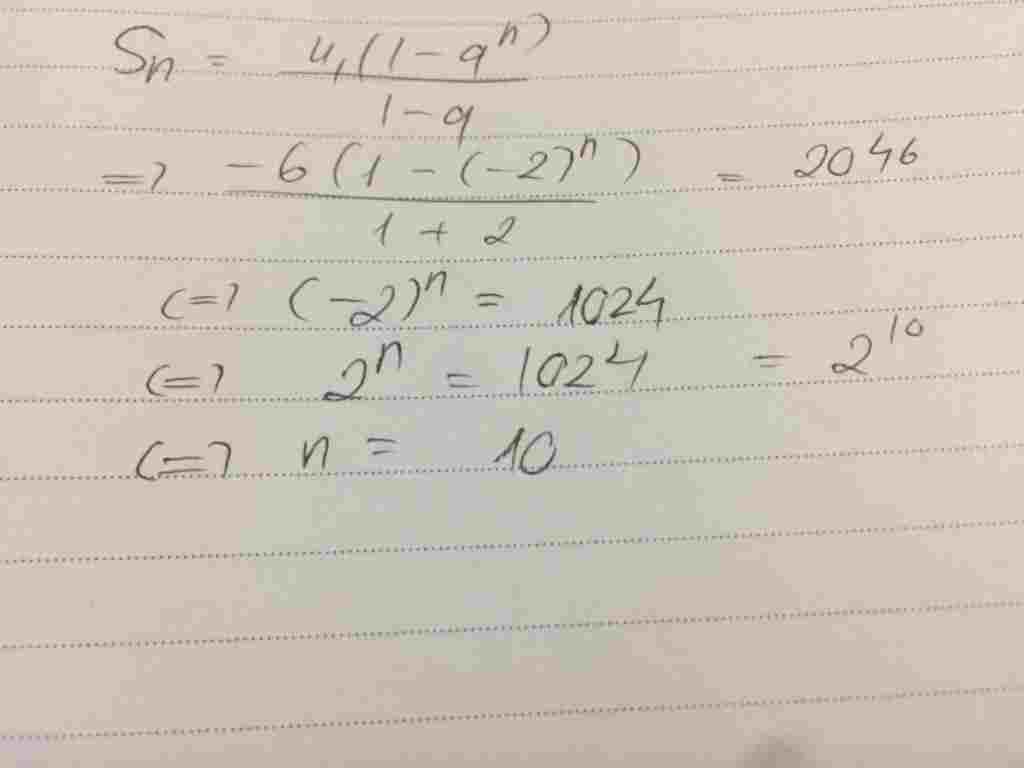 Sn = u₁(1 - qⁿ) / 1 - q
=> -6(1 - (-2)ⁿ) / 1 + 2 = 2046
<=> (-2)ⁿ = 1024
<=> 2ⁿ = 1024 = 2¹⁰
<=> n = 10